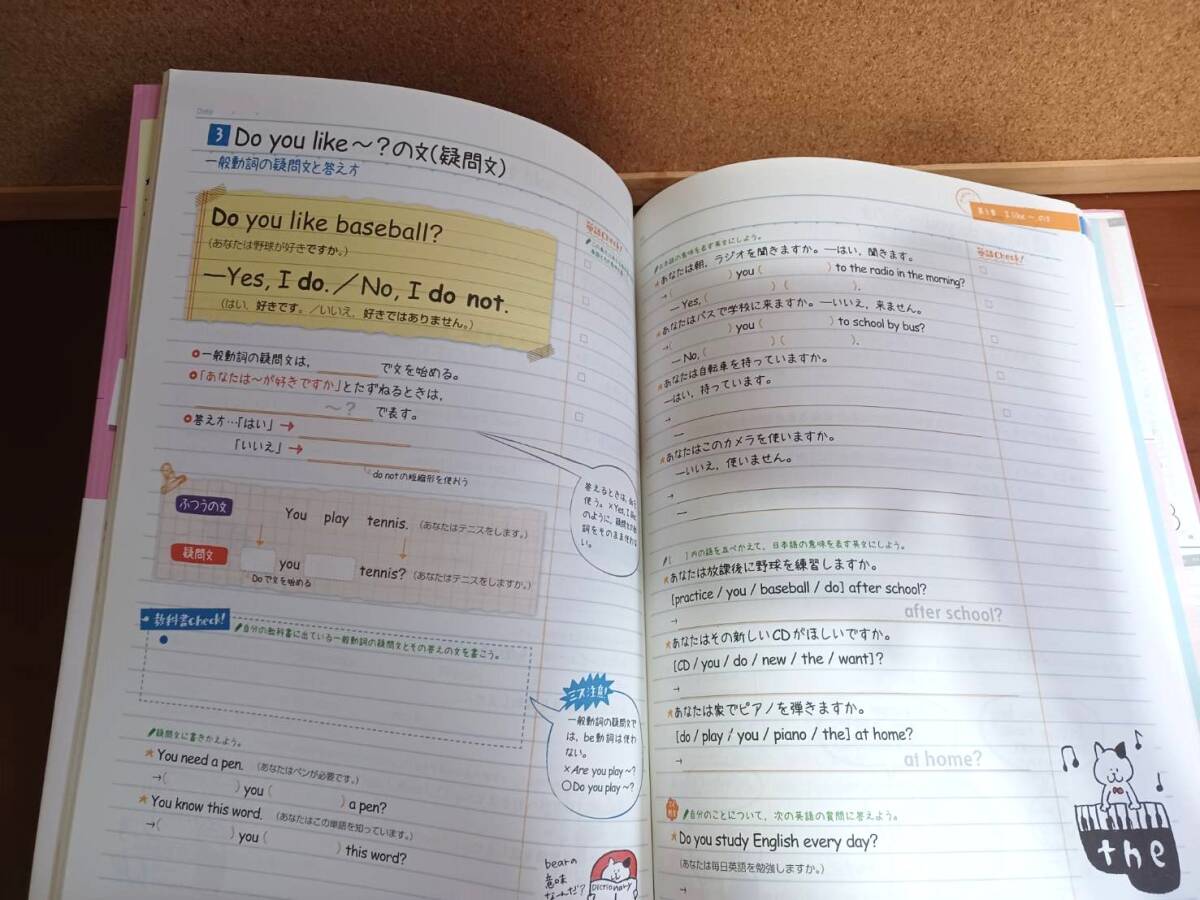 Date
3 Do you like ～?の文(疑問文)
一般動詞の疑問文と答え方
Do you like baseball?
(あなたは野球が好きですか。)
—Yes, I do./No, I do not.
(はい、好きです。/いいえ、好きではありません。)
英語Check!
一般動詞の疑問文は、 で文を始める。
「あなたは～が好きですか」とたずねるときは、
～? で表す。
答え方…「はい」→
「いいえ」→
do notの短縮形を使おう
答えるときは、
使う。×Yes, I
のように、疑問文の
詞をそのまま使わな
い。
ふつうの文 You play tennis. (あなたはテニスをします。)
疑問文 you tennis? (あなたはテニスをしますか。)
Doで文を始める
教科書Check!
自分の教科書に出ている一般動詞の疑問文とその答えの文を書こう。
ミス注意!
一般動詞の疑問文で
は、be動詞は使わ
ない。
×Are you play ～?
○Do you play ～?
疑問文に書きかえよう。
★You need a pen. (あなたはペンが必要です。)
→( ) you ( ) a pen?
★You know this word. (あなたはこの単語を知っています。)
→( ) you ( ) this word?
bearの
意味
なんだ?
Dictionary
第3章 I like ～.の文
英語Check!
日本語の意味を表す英文にしよう。
★あなたは朝、ラジオを聞きますか。—はい、聞きます。
→( ) you ( ) to the radio in the morning?
— Yes, ( ) ( ).
★あなたはバスで学校に来ますか。—いいえ、来ません。
→( ) you ( ) to school by bus?
— No, ( ) ( ).
★あなたは自転車を持っていますか。
—はい、持っています。
→
—
★あなたはこのカメラを使いますか。
—いいえ、使いません。
→
—
[ ]内の語を並べかえて、日本語の意味を表す英文にしよう。
★あなたは放課後に野球を練習しますか。
[practice / you / baseball / do] after school?
→ after school?
★あなたはその新しいCDがほしいですか。
[CD / you / do / new / the / want]?
→
★あなたは家でピアノを弾きますか。
[do / play / you / piano / the] at home?
→ at home?
自分のことについて、次の英語の質問に答えよう。
★Do you study English every day?
(あなたは毎日英語を勉強しますか。)
→
the